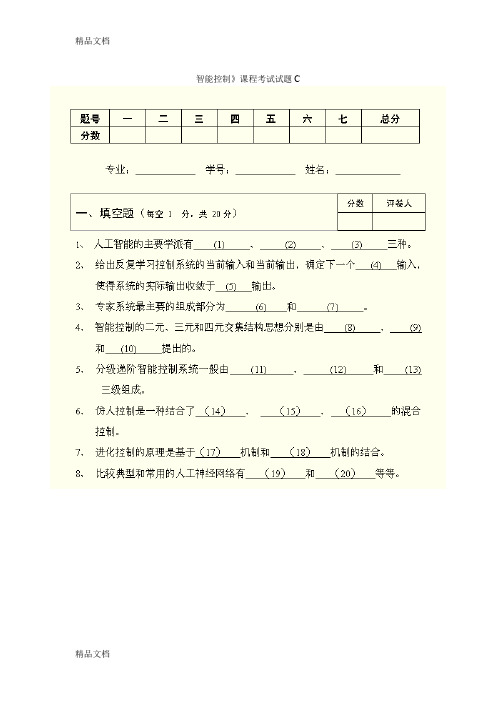 精品文档
智能控制》课程考试试题C
题号 一 二 三 四 五 六 七 总分
分数
专业：____________ 学号：____________ 姓名：____________
一、填空题（每空 1 分，共 20分） 分数 评卷人
1、 人工智能的主要学派有 (1) 、 (2) 、 (3) 三种。
2、 给出反复学习控制系统的当前输入和当前输出，确定下一个 (4) 输入，
使得系统的实际输出收敛于 (5) 输出。
3、 专家系统最主要的组成部分为 (6) 和 (7) 。
4、 智能控制的二元、三元和四元交集结构思想分别是由 (8) 、 (9)
和 (10) 提出的。
5、 分级递阶智能控制系统一般由 (11) 、 (12) 和 (13)
三级组成。
6、 仿人控制是一种结合了 （14） 、 （15） 、 （16） 的混合
控制。
7、 进化控制的原理是基于（17） 机制和 （18） 机制的结合。
8、 比较典型和常用的人工神经网络有 （19） 和 （20） 等等。
精品文档